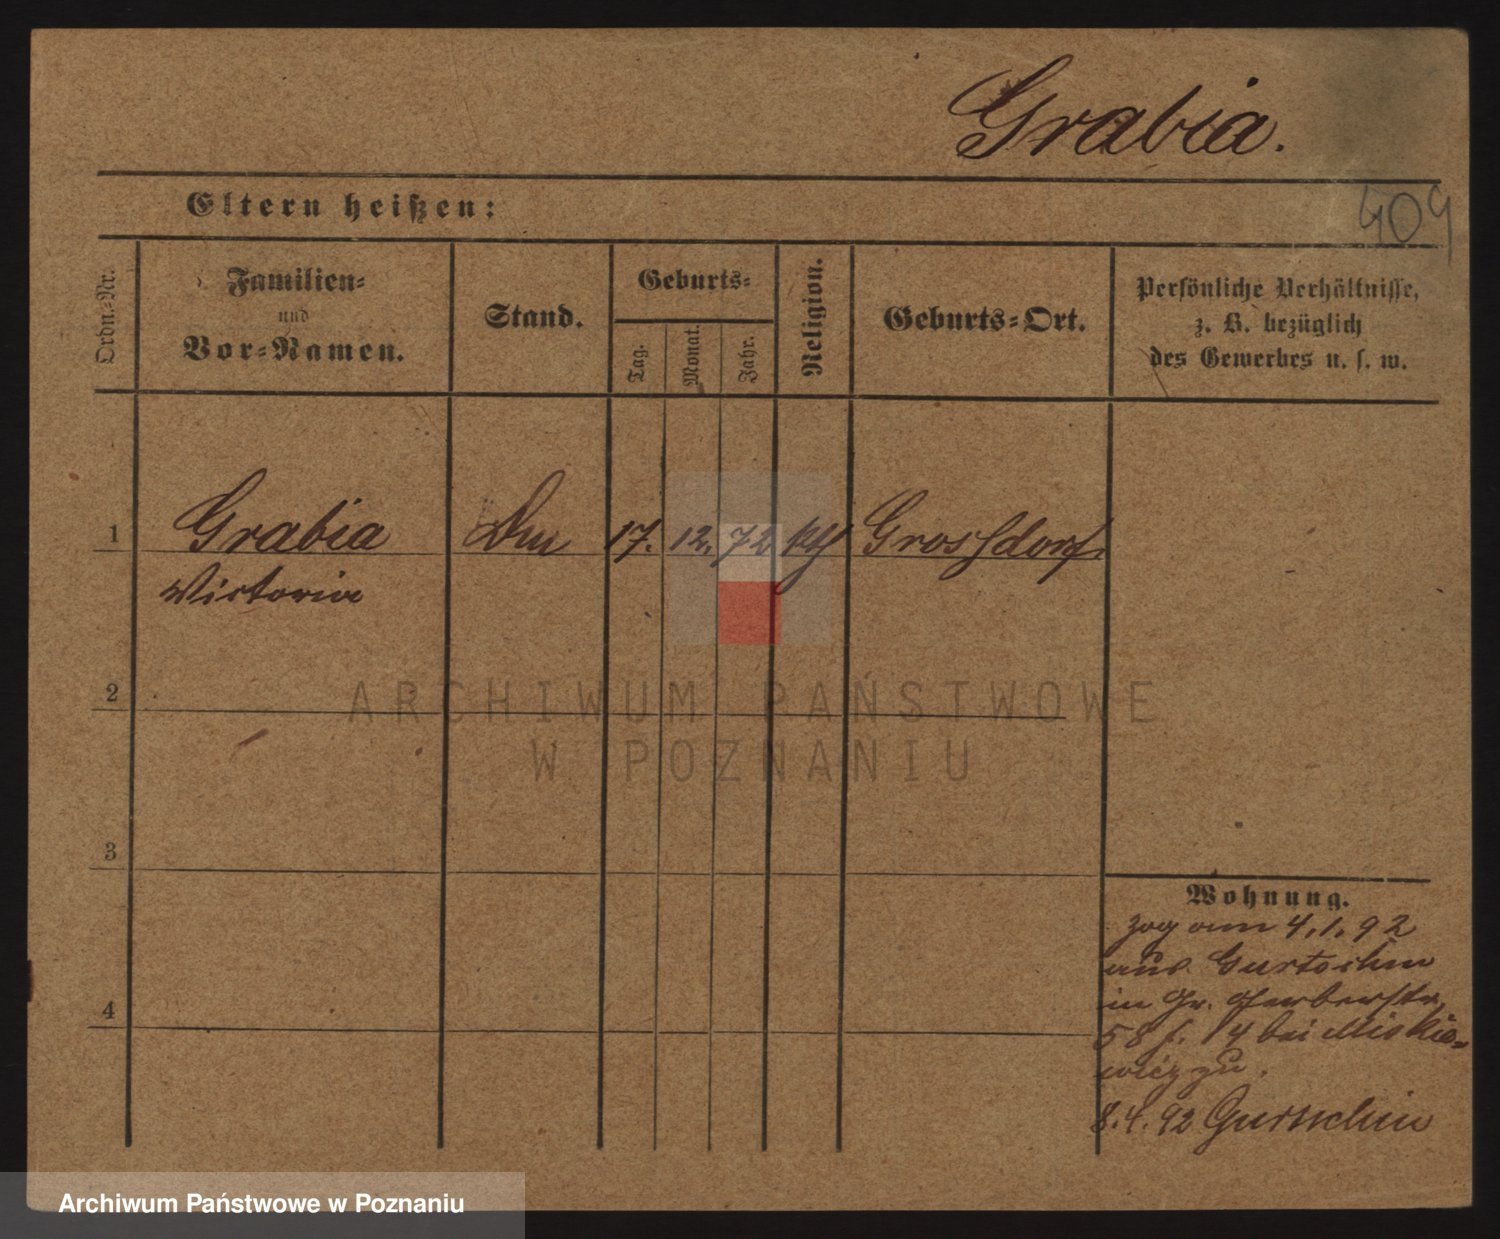 Grabia.
409
Eltern heißen:
Ordn.-Nr.
Familien-
und
Vor-Namen.
Stand.
Geburts-
Tag.
Monat.
Jahr.
Religion.
Geburts-Ort.
Persönliche Verhältnisse,
z. B. bezüglich
des Gewerbes u. s. w.
1
Grabia
17.
12.
72
Grossdorf
Victoria
2
ARCHIWUM PAŃSTWOWE
W POZNANIU
3
Wohnung.
zog am 4.1.92
aus
in Gr. Gerberstr.
58 14 bei Miskie-
wicz zu.
4
8.4.92 Gurtschin
Archiwum Państwowe w Poznaniu